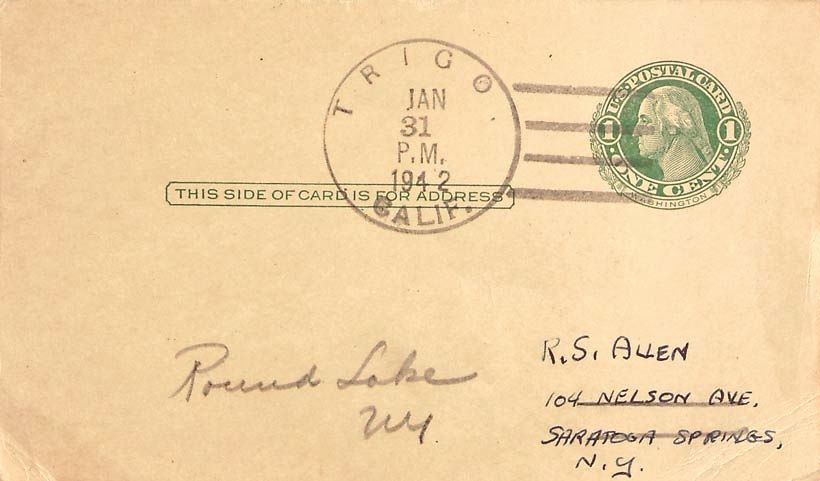 TRIGO
JAN
31
P.M.
1942
CALIF.
U.S. POSTAL CARD
1 1
ONE CENT
WASHINGTON
THIS SIDE OF CARD IS FOR ADDRESS
R.S. ALLEN
104 NELSON AVE.
SARATOGA SPRINGS,
N.Y.
Round Lake
NY